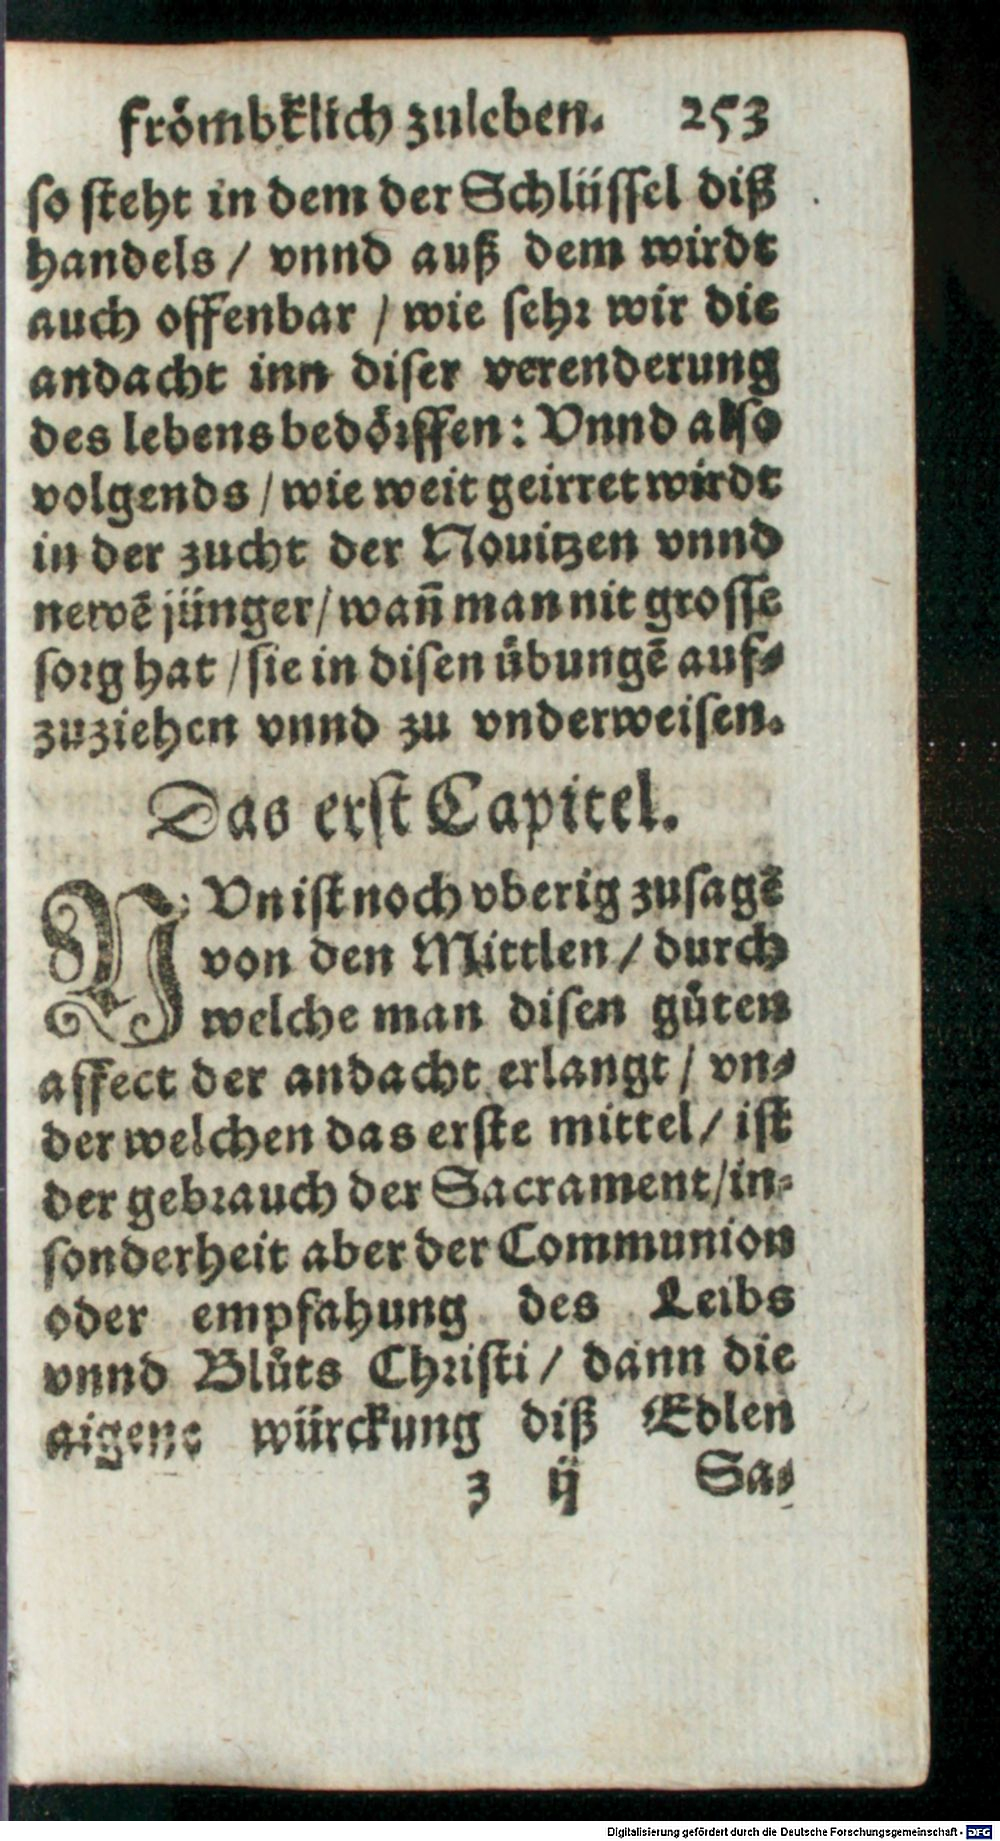 frömbklich zuleben. 253
so steht in dem der Schlüssel diß
handels / vnnd auß dem wirdt
auch offenbar / wie sehr wir die
andacht inn diser verenderung
des lebens bedörffen: Vnnd also
volgends / wie weit geirret wirdt
in der zucht der Nouitzen vnnd
newē jünger / wañ man nit grosse
sorg hat / sie in disen übungē auf-
zuziehen vnnd zu vnderweisen.
Das erst Capitel.
NVn ist noch vberig zusagē
von den Mittlen / durch
welche man disen gůten
affect der andacht erlangt / vn-
der welchen das erste mittel / ist
der gebrauch der Sacrament / in-
sonderheit aber der Communion
oder empfahung des Leibs
vnnd Blůts Christi / dann die
aigene würckung diß Edlen
z ij Sa-
Digitalisierung gefördert durch die Deutsche Forschungsgemeinschaft - DFG